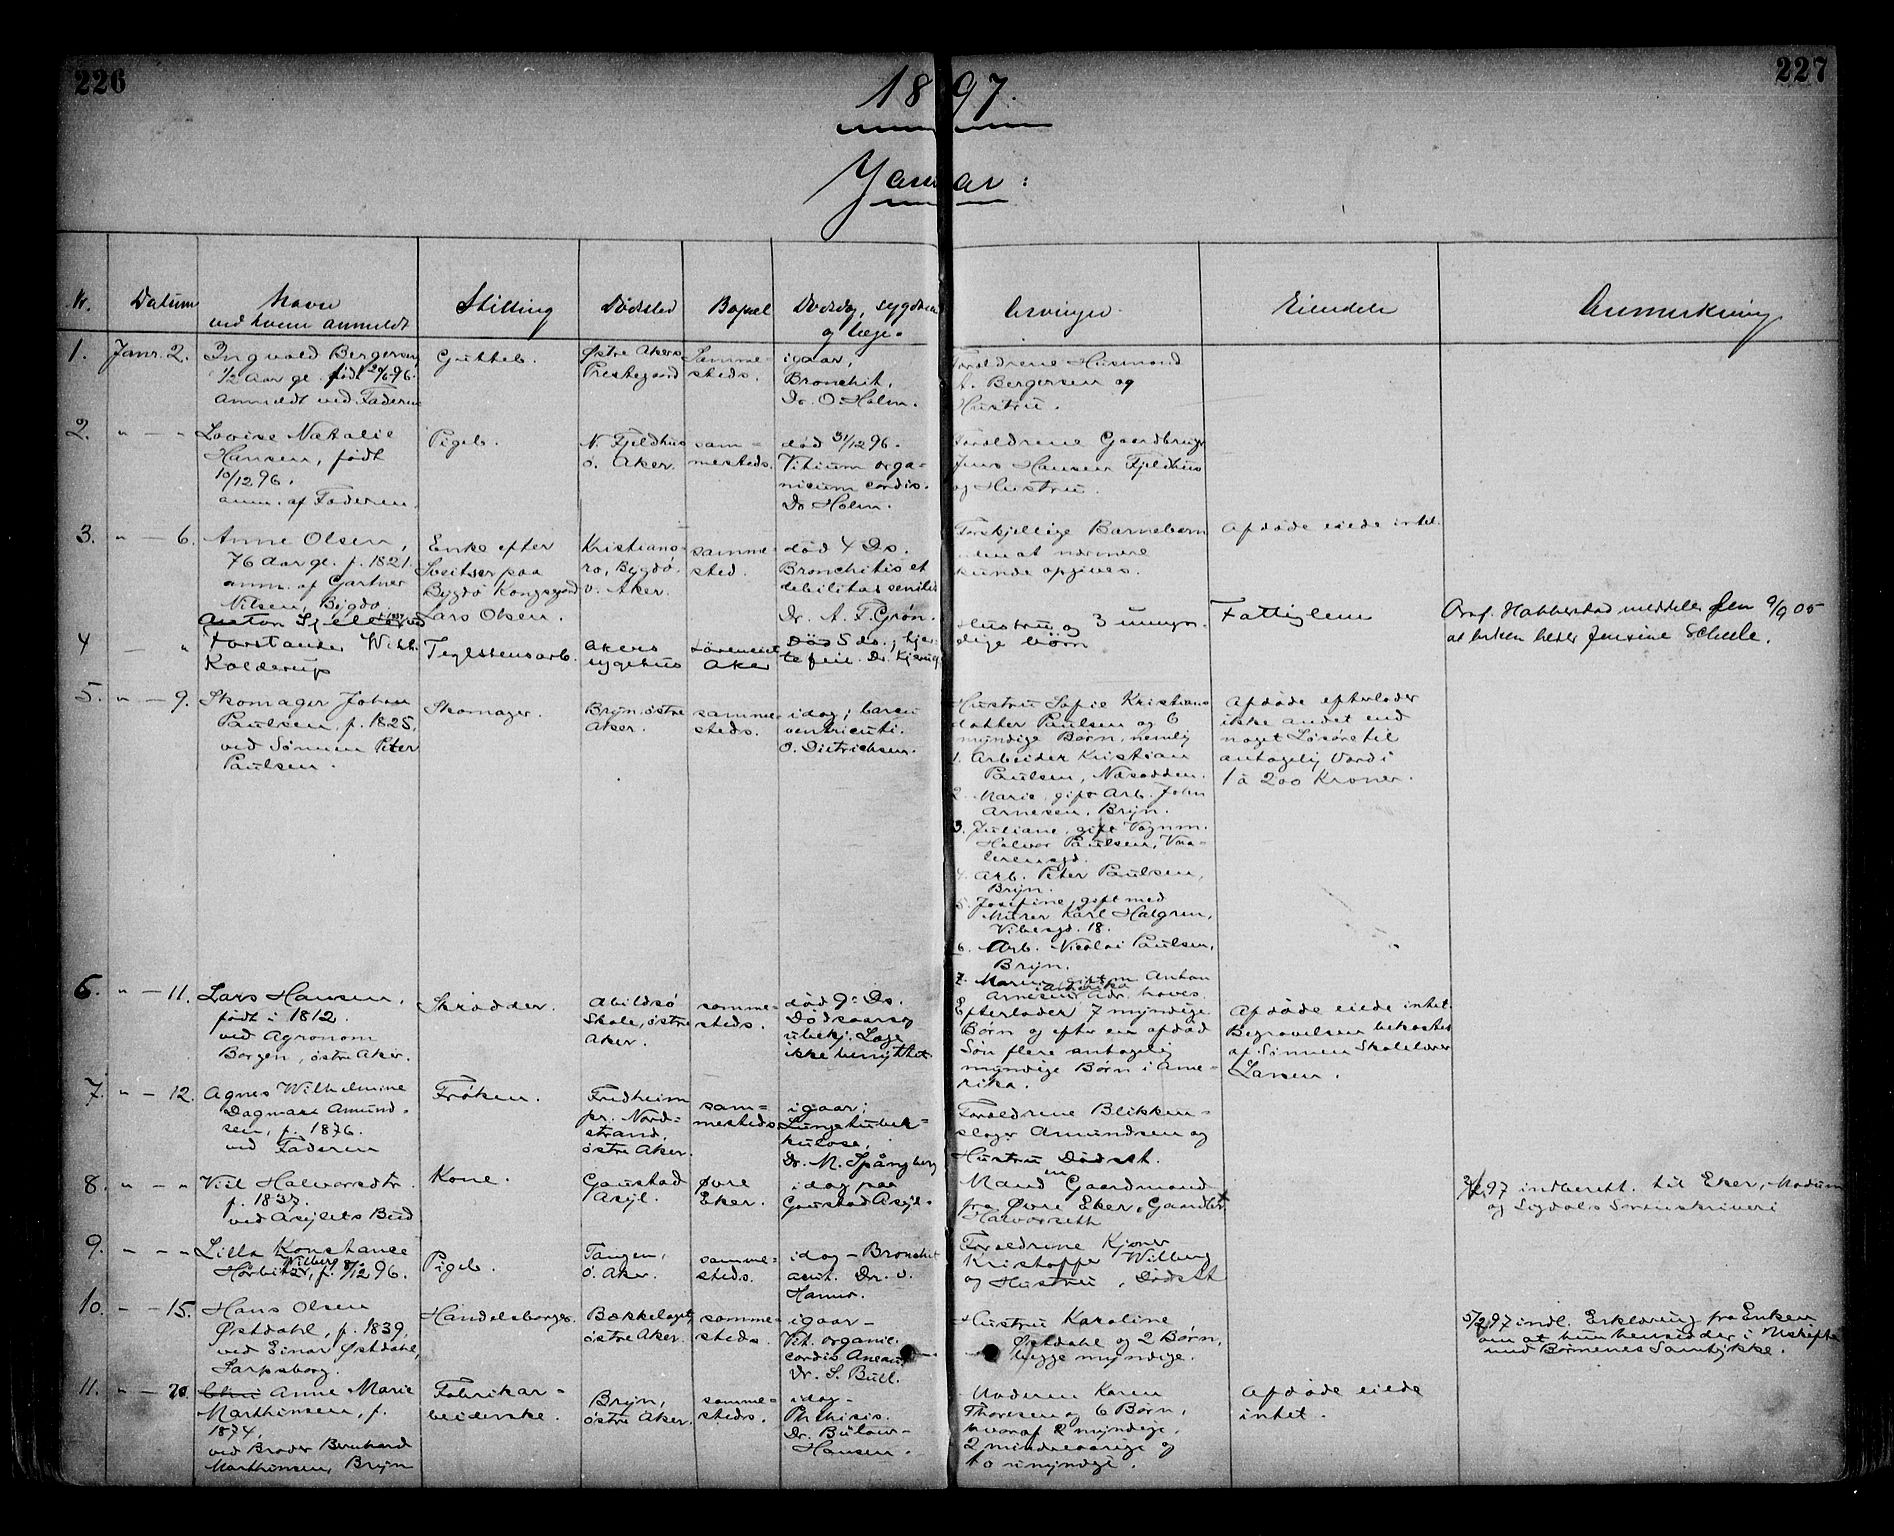 226
227
1897.
Januar:
Nr.
Datum
Navn
ved hvem anmeldt
Stilling
Dødssted
Bopæl
Dødsdag, sygdom
og læge
Arvinger
Eiendele
Anmerkning
1.
Janr. 2.
Ingvald Bergersen
1/2 Aar gl. født 20/6 96.
anmeldt ved Faderen
Gutteb.
Østre Akers
Prestegaard
Samme-
steds.
igaar,
Bronchit.
Dr. O. Holm.
Forældrene Husmand
A. Bergersen og
Hustru.
2.
" — "
Lovise Natalie
Hansen, født
10/12 96.
anm. af Faderen.
Pigeb.
N. Fjeldhus
ö. Aker.
sam-
mesteds.
död 31/12 96.
Vitium orga-
nicum cordis.
Dr Holm.
Forældrene Gaardbruger
Jens Hansen Fjeldhus
og Hustru.
3.
" — 6.
Anne Olsen,
76 Aar gl. f. 1821.
anm. af Gartner
Nilsen, Bygdö.
Enke efter
Sveitser paa
Bygdö Kongsgaard
Lars Olsen.
Kristians-
ro, Bygdö.
v. Aker.
samme-
sted.
död 4 Ds.
Bronchitis et
debilitas senilis
Dr. A. F. Grön.
Forskjellige Barnebarn
uden at nærmere
kunde opgives.
Afdöde eiede intet.
4
— "
Anton
Forstander Wilh.
Kolderup
Teglstensarb.
Akers
sygehus
Aker
Död 5 ds.; hjer-
tefeil. Dr.
Hustru og 3 umyn-
dige börn
Fattiglem
Prof. Habberstad meddeler den 9/9 05
at enken heder Jensine Schule.
5.
" — 9.
Skomager Johan
Paulsen, f. 1825,
ved Sønnen Peter
Paulsen.
Skomager.
Bryn östre
Aker.
samme-
steds.
idag;
ventriculi.
O. Dietrichsen.
Hustru Sofie Kristians
datter Paulsen og 6
myndige Börn, nemlig
1. Arbeider Kristian
Paulsen, Næsodden.
2. Marie, gift Arb. John
Arnesen, Bryn.
3. Juliane, gift Vognm.
Halvor Paulsen, Vaa-
lerengd.
4. Arb. Peter Paulsen,
Bryn.
5. Josefine, gift med
Murer Karl Halgren,
Vibesgd. 18.
6. Arb. Nicolai Paulsen,
Bryn.
7. Maren, gift m Anton
Arnesen, Amerika Adr. haves.
Afdöde efterlader
ikke andet end
noget Lösöre til
antagelig Værdi
1 à 200 Kroner.
6.
" — 11.
Lars Hansen,
født i 1812.
ved Agronom
Borgen, östre Aker.
Skrædder.
Abildsö
Skole, östre
Aker.
samme-
steds.
död 9de Ds.
Dödsaarsag
ubekj. Læge
ikke benyttet
Efterlader 7 myndige
Börn og efter en afdöd
Sön flere antagelig
myndige Börn i Ame-
rika.
Afdöde eiede intet
Begravelsen bekostes
af Sönnen Skolelærer
Larsen.
7.
" — 12.
Agnes Wilhelmine
Dagmar Amund-
sen, f. 1876.
ved Faderen
Frøken.
Fredheim
pr. Nord-
strand,
östre Aker.
sam-
mesteds
igaar;
Lungetuber-
kulose,
Dr. M. Spångberg
Forældrene Blikken-
slager Amundsen og
Hustru Dödsatt.
8.
" — "
Viel Halvorsdtr.
f. 1837.
ved Asylets Bud
Kone.
Gaustad
Asyl.
Øvre
Eker.
idag paa
Gaustad Asyl.
Manden Gaardmand
fra Øvre Eker, Gaardbr.
Halvorseth
97 indberett. til Eker, Modum
og Sigdals Sorenskriveri
9.
" — "
Lilla Konstance
Wilberg
f. 8/12 96.
Pigeb.
Tangen,
ö. Aker.
samme-
steds.
idag — Bronchit
acut. Dr. v.
Hanno.
Forældrene Kjører
Kristoffer Wilberg
og Hustru, Dödsatt
10.
" — 15.
Hans Olsen
Østdahl, f. 1839,
ved Einar Østdahl,
Sarpsborg.
Handelsborger
Bækkelaget,
östre Aker.
samme-
steds.
igaar —
Vit. organic.
cordis
Dr. S. Bull.
Hustru Karoline
Østdahl og 2 Börn,
begge myndige.
5/2 97 indl. Erklæring fra Enken
om at hun hensidder i Uskiftet
med Børnenes Samtykke.
11.
" — 20.
Anne Marie
Marthinsen, f.
1874,
ved Broder Bernhard
Marthinsen, Bryn
Fabrikar-
beiderske.
Bryn,
östre Aker.
samme-
steds.
idag —
Phthisis.
Dr. Bülow-
Hansen.
Moderen Karen
Thoresen og 6 Börn,
hvoraf 2 myndige,
2 mindreaarige og
to umyndige.
Afdöde eiede
intet.